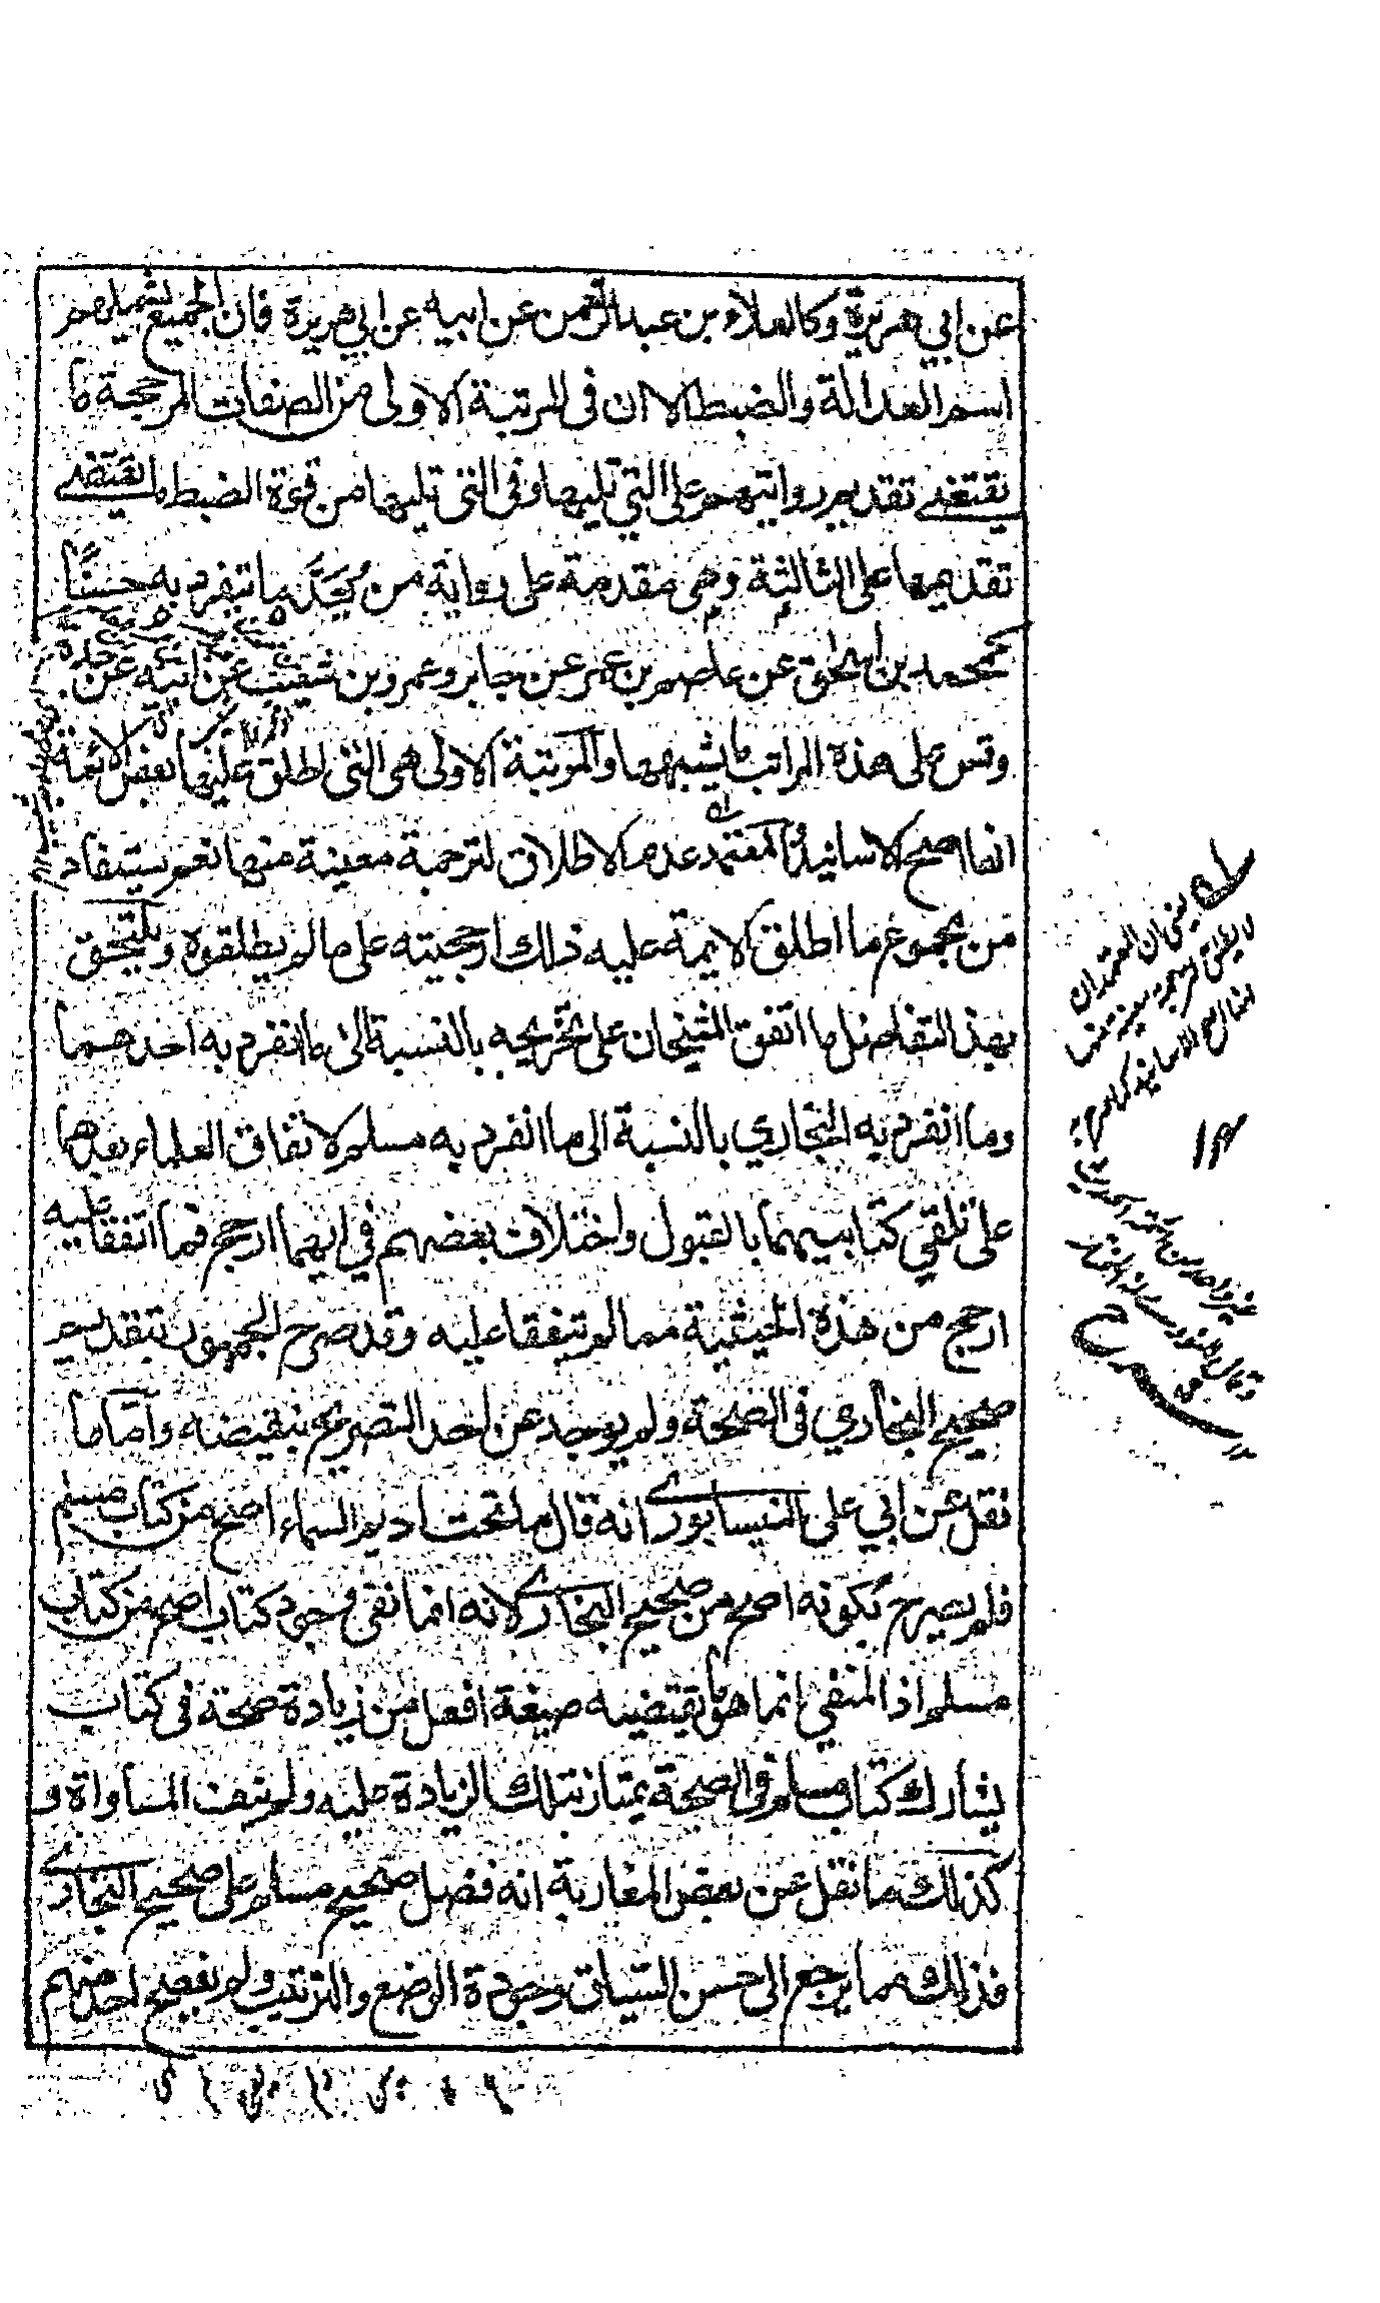 عن ابي هريرة وكالعلاء بن عبد الرحمن عن ابيه عن ابي هريرة فان الجميع يشملهم
اسم العدالة والضبط الا ان فى المرتبة الاولى من الصفات المرجحة ما
يقتضي تقديم روايتهم على التي تليها وفى التي تليها من قوة الضبط ما يقتضي
تقديمها على الثالثة وهي مقدمة على رواية من يعد ما يتفرد به حسنًا
كمحمد بن اسحق عن عاصم بن عمر عن جابر وعمرو بن شعيب عن ابيه عن جده
وقس على هذه المراتب ما يشبهها والمرتبة الاولى هي التي اطلق عليها بعض الائمة
انها اصح الاسانيد والمعتمد عدم الاطلاق لترجمة معينة منها نعم يستفاد
من مجموع ما اطلق الايمة عليه ذلك ارجحيته على ما لم يطلقوه ويلتحق
بهذ التفاضل ما اتفق الشيخان على تخريجه بالنسبة الى ما انفرد به احدهما
وما انفرد به البخاري بالنسبة الى ما انفرد به مسلم لاتفاق العلماء بعدهما
على تلقي كتابيهما بالقبول واختلاف بعضهم في ايهما ارجح فما اتفقا عليه
ارجح من هذه الحيثية مما لم يتفقا عليه وقد صرح الجمهور بتقديم
صحيح البخاري فى الصحة ولم يوجد عن احد التصريح بنقيضه وأما ما
نقل عن ابي على النيسابوري انه قال ما تحت اديم السماء اصح من كتاب مسلم
فلم يصرح بكونه اصح من صحيح البخاري لانه انما نفى وجود كتاب اصح من كتاب
مسلم اذ المنفي انما هو ما يقتضيه صيغة افعل من زيادة صحة فى كتاب
يشارك كتاب مسلم في الصحة يمتاز بتلك الزيادة عليه ولم ينف المساواة و
كذلك ما نقل عن بعض المغاربة انه فضل صحيح مسلم على صحيح البخاري
فذلك مما يرجع الى حسن السياق وجودة الوضع والترتيب ولم يفصح احد منهم
يعني ان المعتمد ان
لا يطلق لترجمة معينة منها
انها اصح الاسانيد
١٢